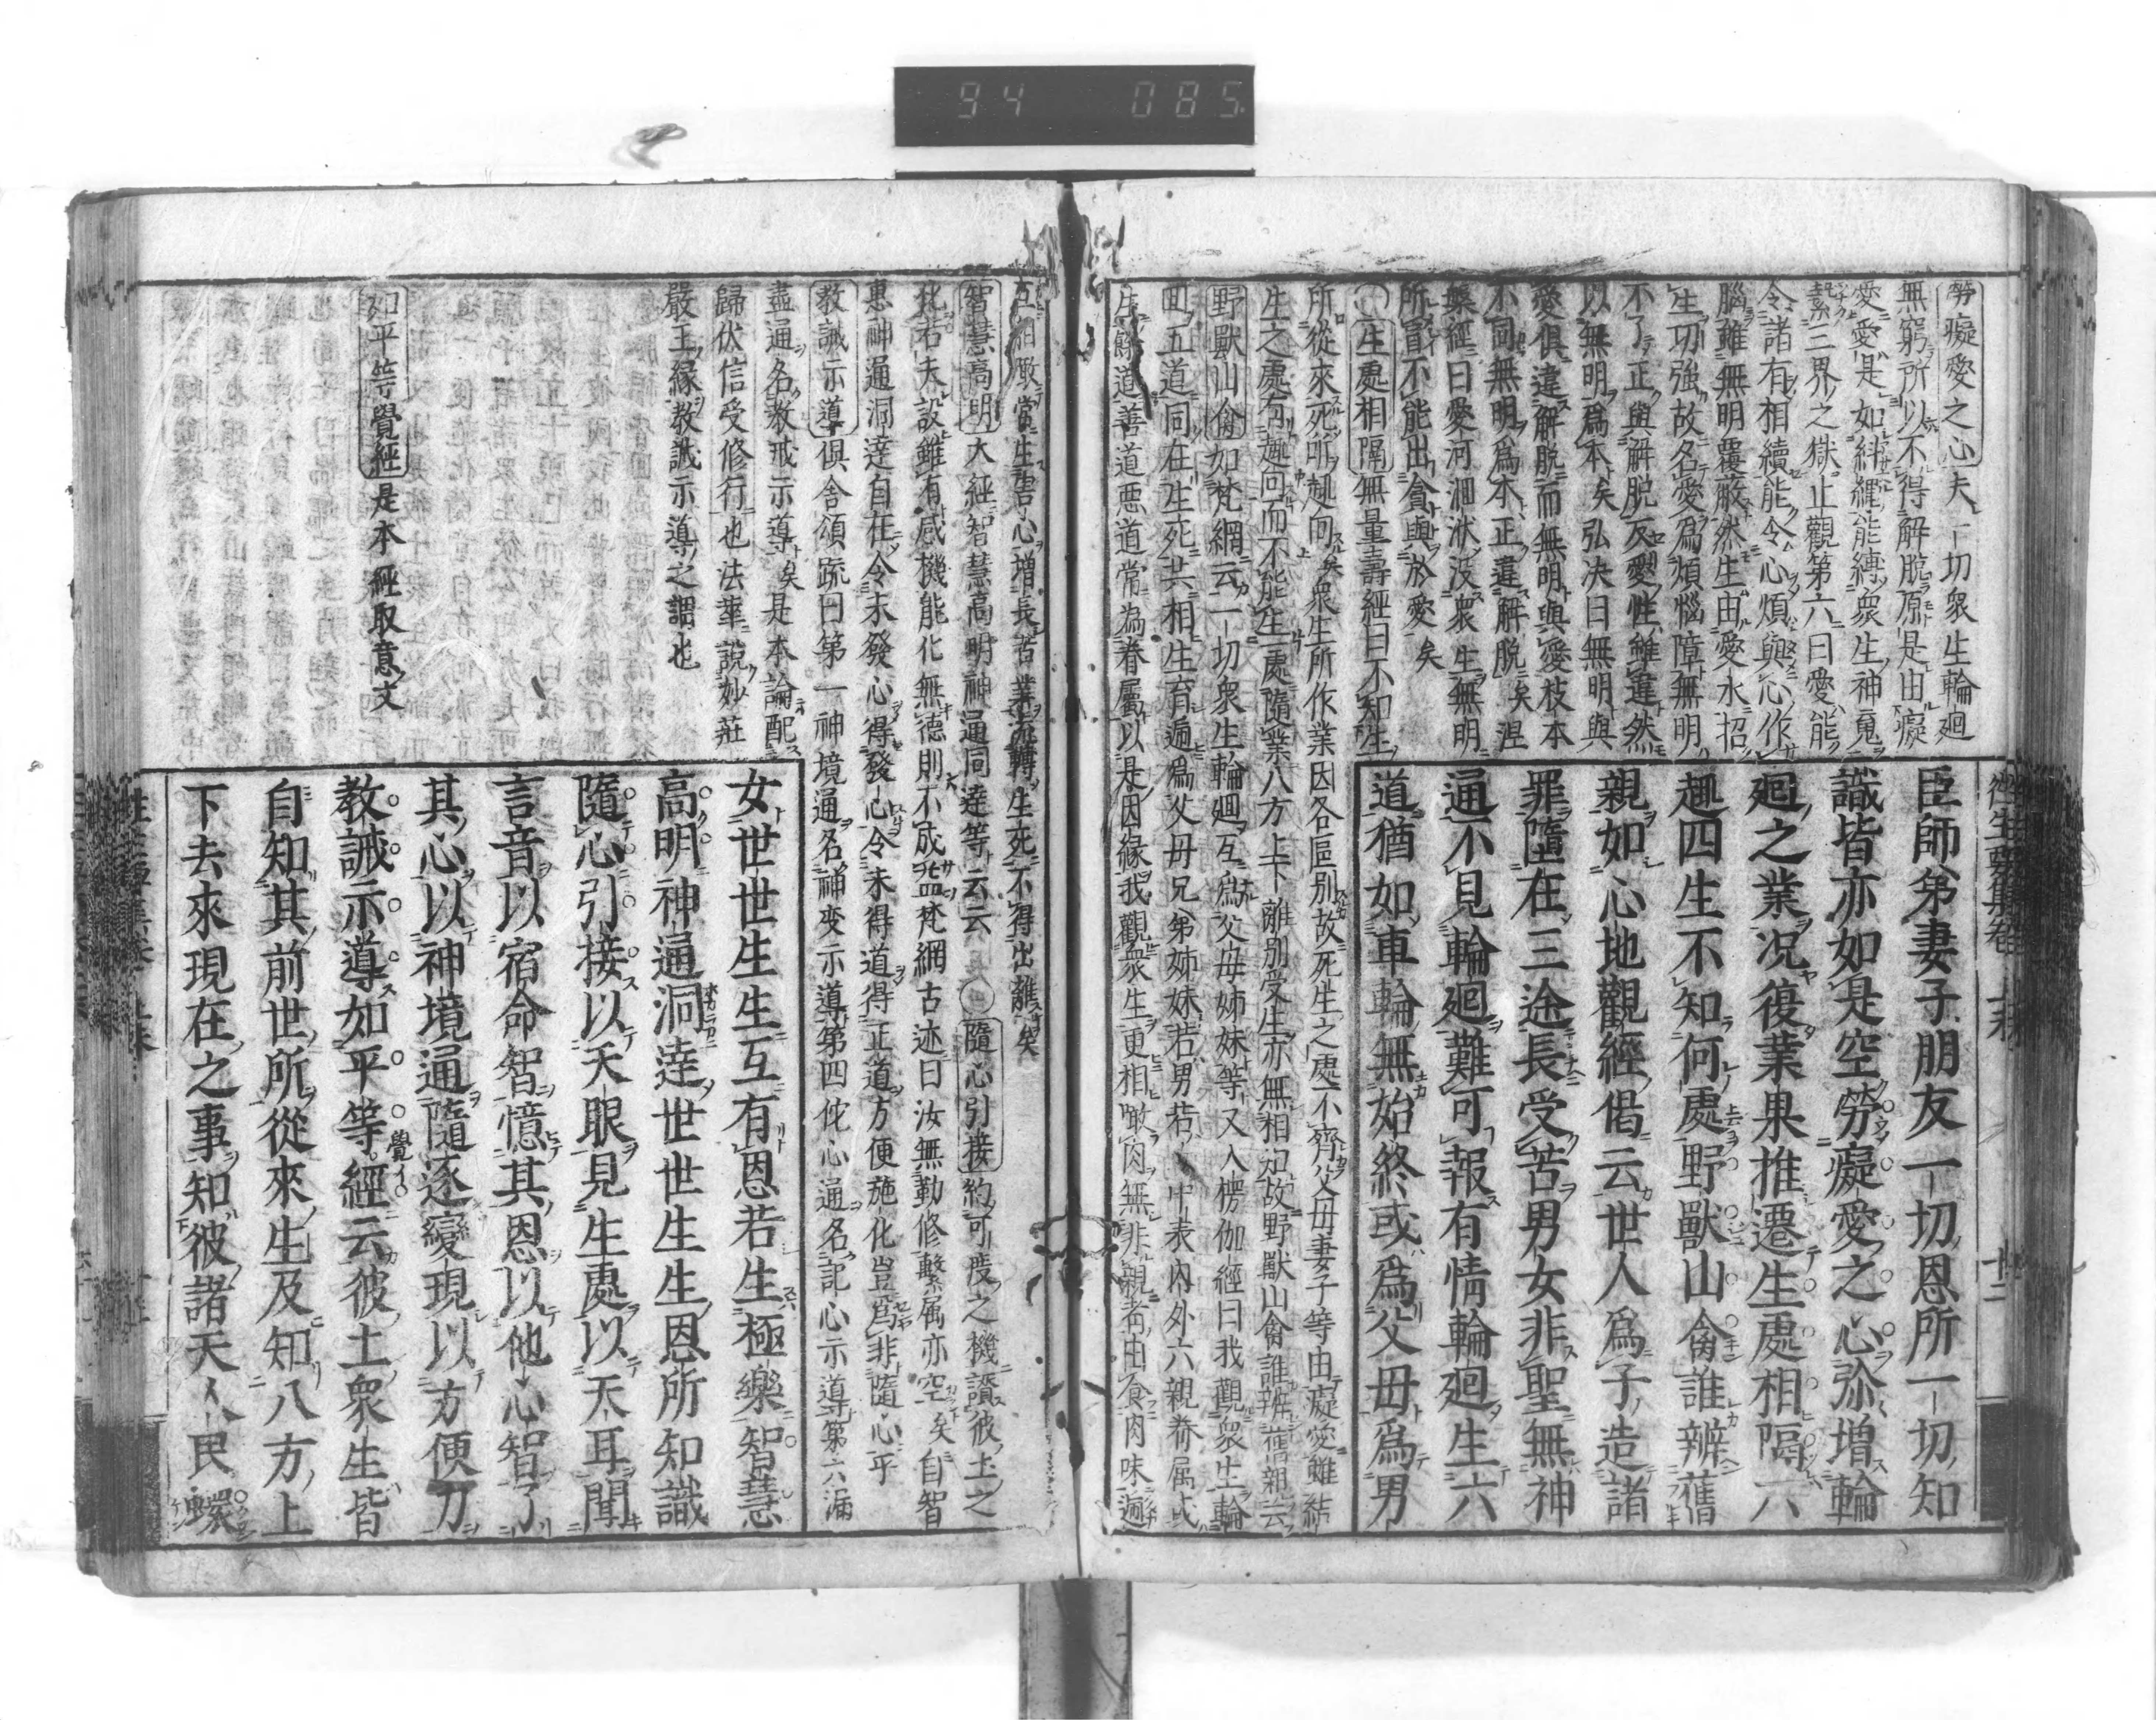 94 085
勞癡愛之心夫一切衆生輪廻
無窮所以不得解脱原是由癡
愛愛是如絆繩能縛衆生神䰟
繫三界之獄止觀第六曰愛能
令諸有相續能令心煩與心作
惱雖無明覆蔽然生由愛水招
生功強故名愛爲煩惱障無明
不了正與解脱反愛性雖違然
以無明爲本矣弘决曰無明與
愛俱違解脱而無明與愛枝本
不同無明爲本正違解脱矣涅
槃經曰愛河洄洑没衆生無明
所盲不能出貪與於愛矣
○生處相隔無量壽經曰不知生
所從來死所趣向矣衆生所作業因各區別故死生之處不齊父母妻子等由癡愛雖結
生之處有趣向而不能生一處隨業八方上下離別受生亦無相知故野獸山禽誰辨舊親云
野獸山禽如梵網云一切衆生輪廻互爲父母姉妹等又入楞伽經曰我觀衆生輪
廻五道同在生死共相生育遍爲父母兄弟姉妹若男若女中表内外六親眷属或
生餘道善道悪道常為眷屬以是因緣我觀衆生更相噉肉無非親者由食肉味遍
臣師弟妻子朋友一切恩所一切知
識皆亦如是空勞癡愛之心弥増輪
廻之業况復業果推遷生處相隔六
趣四生不知何處野獸山禽誰辨舊
親如心地觀經偈云世人爲子造諸
罪墮在三途長受苦男女非聖無神
通不見輪廻難可報有情輪廻生六
道猶如車輪無始終或爲父母爲男
往生要集卷上末 十二
互相噉常生害心増長苦業流轉生死不得出離矣
智慧高明大經智慧高明神通同達等云云○隨心引接約可度之機讃彼土之
化若夫設雖有感機能化無徳則不成益梵網古迹曰汝無勤修繫属亦空矣自智
惠神通洞達自在令未發心得發心令未得道得正道方便施化豈爲非隨心乎
教誡示導俱舎頌疏曰第一神境通名神変示導第四佗心通名記心示導第六漏
盡通名教戒示導矣是本論配
歸伏信受修行也法華説妙莊
嚴王縁教誡示導之謂也
如平等覺經是本經取意文
女世世生生互有恩若生極樂智慧
高明神通洞達世世生生恩所知識
隨心引接以天眼見生處以天耳聞
言音以宿命智憶其恩以他心智了
其心以神境通隨逐變現以方便力
教誡示導如平等覺イ經云彼土衆生皆
自知其前世所從來生及知八方上
下去來現在之事知彼諸天人民蠉